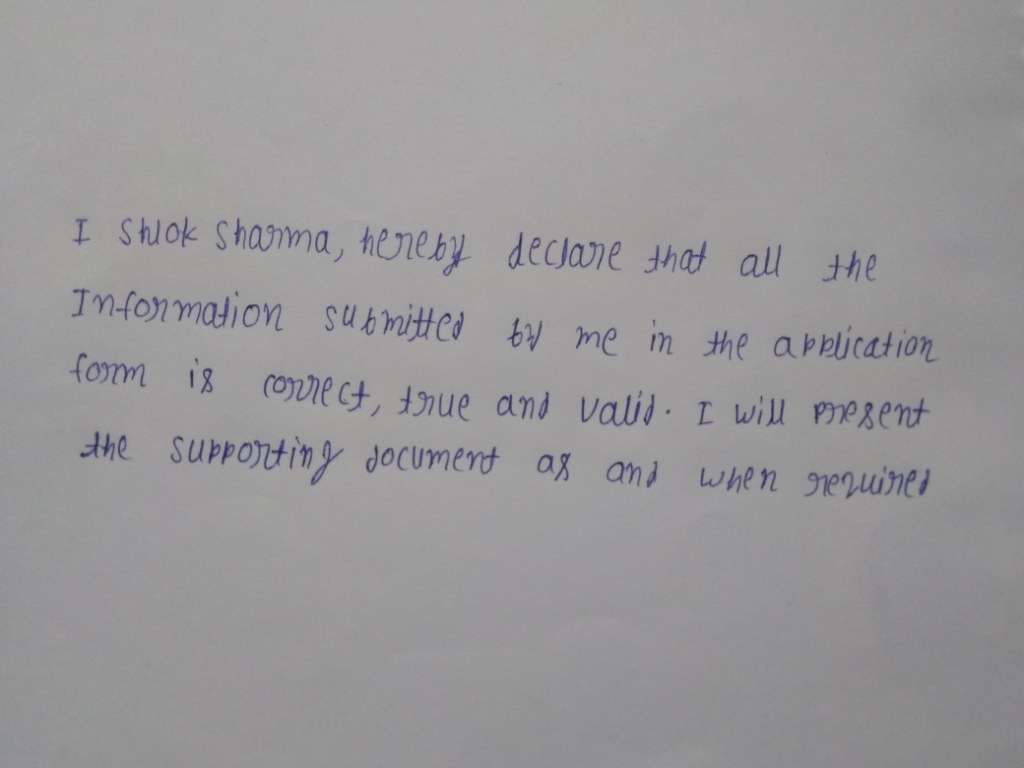 I Shlok Sharma, hereby declare that all the
Information submitted by me in the application
form is correct, true and valid. I will present
the supporting document as and when required